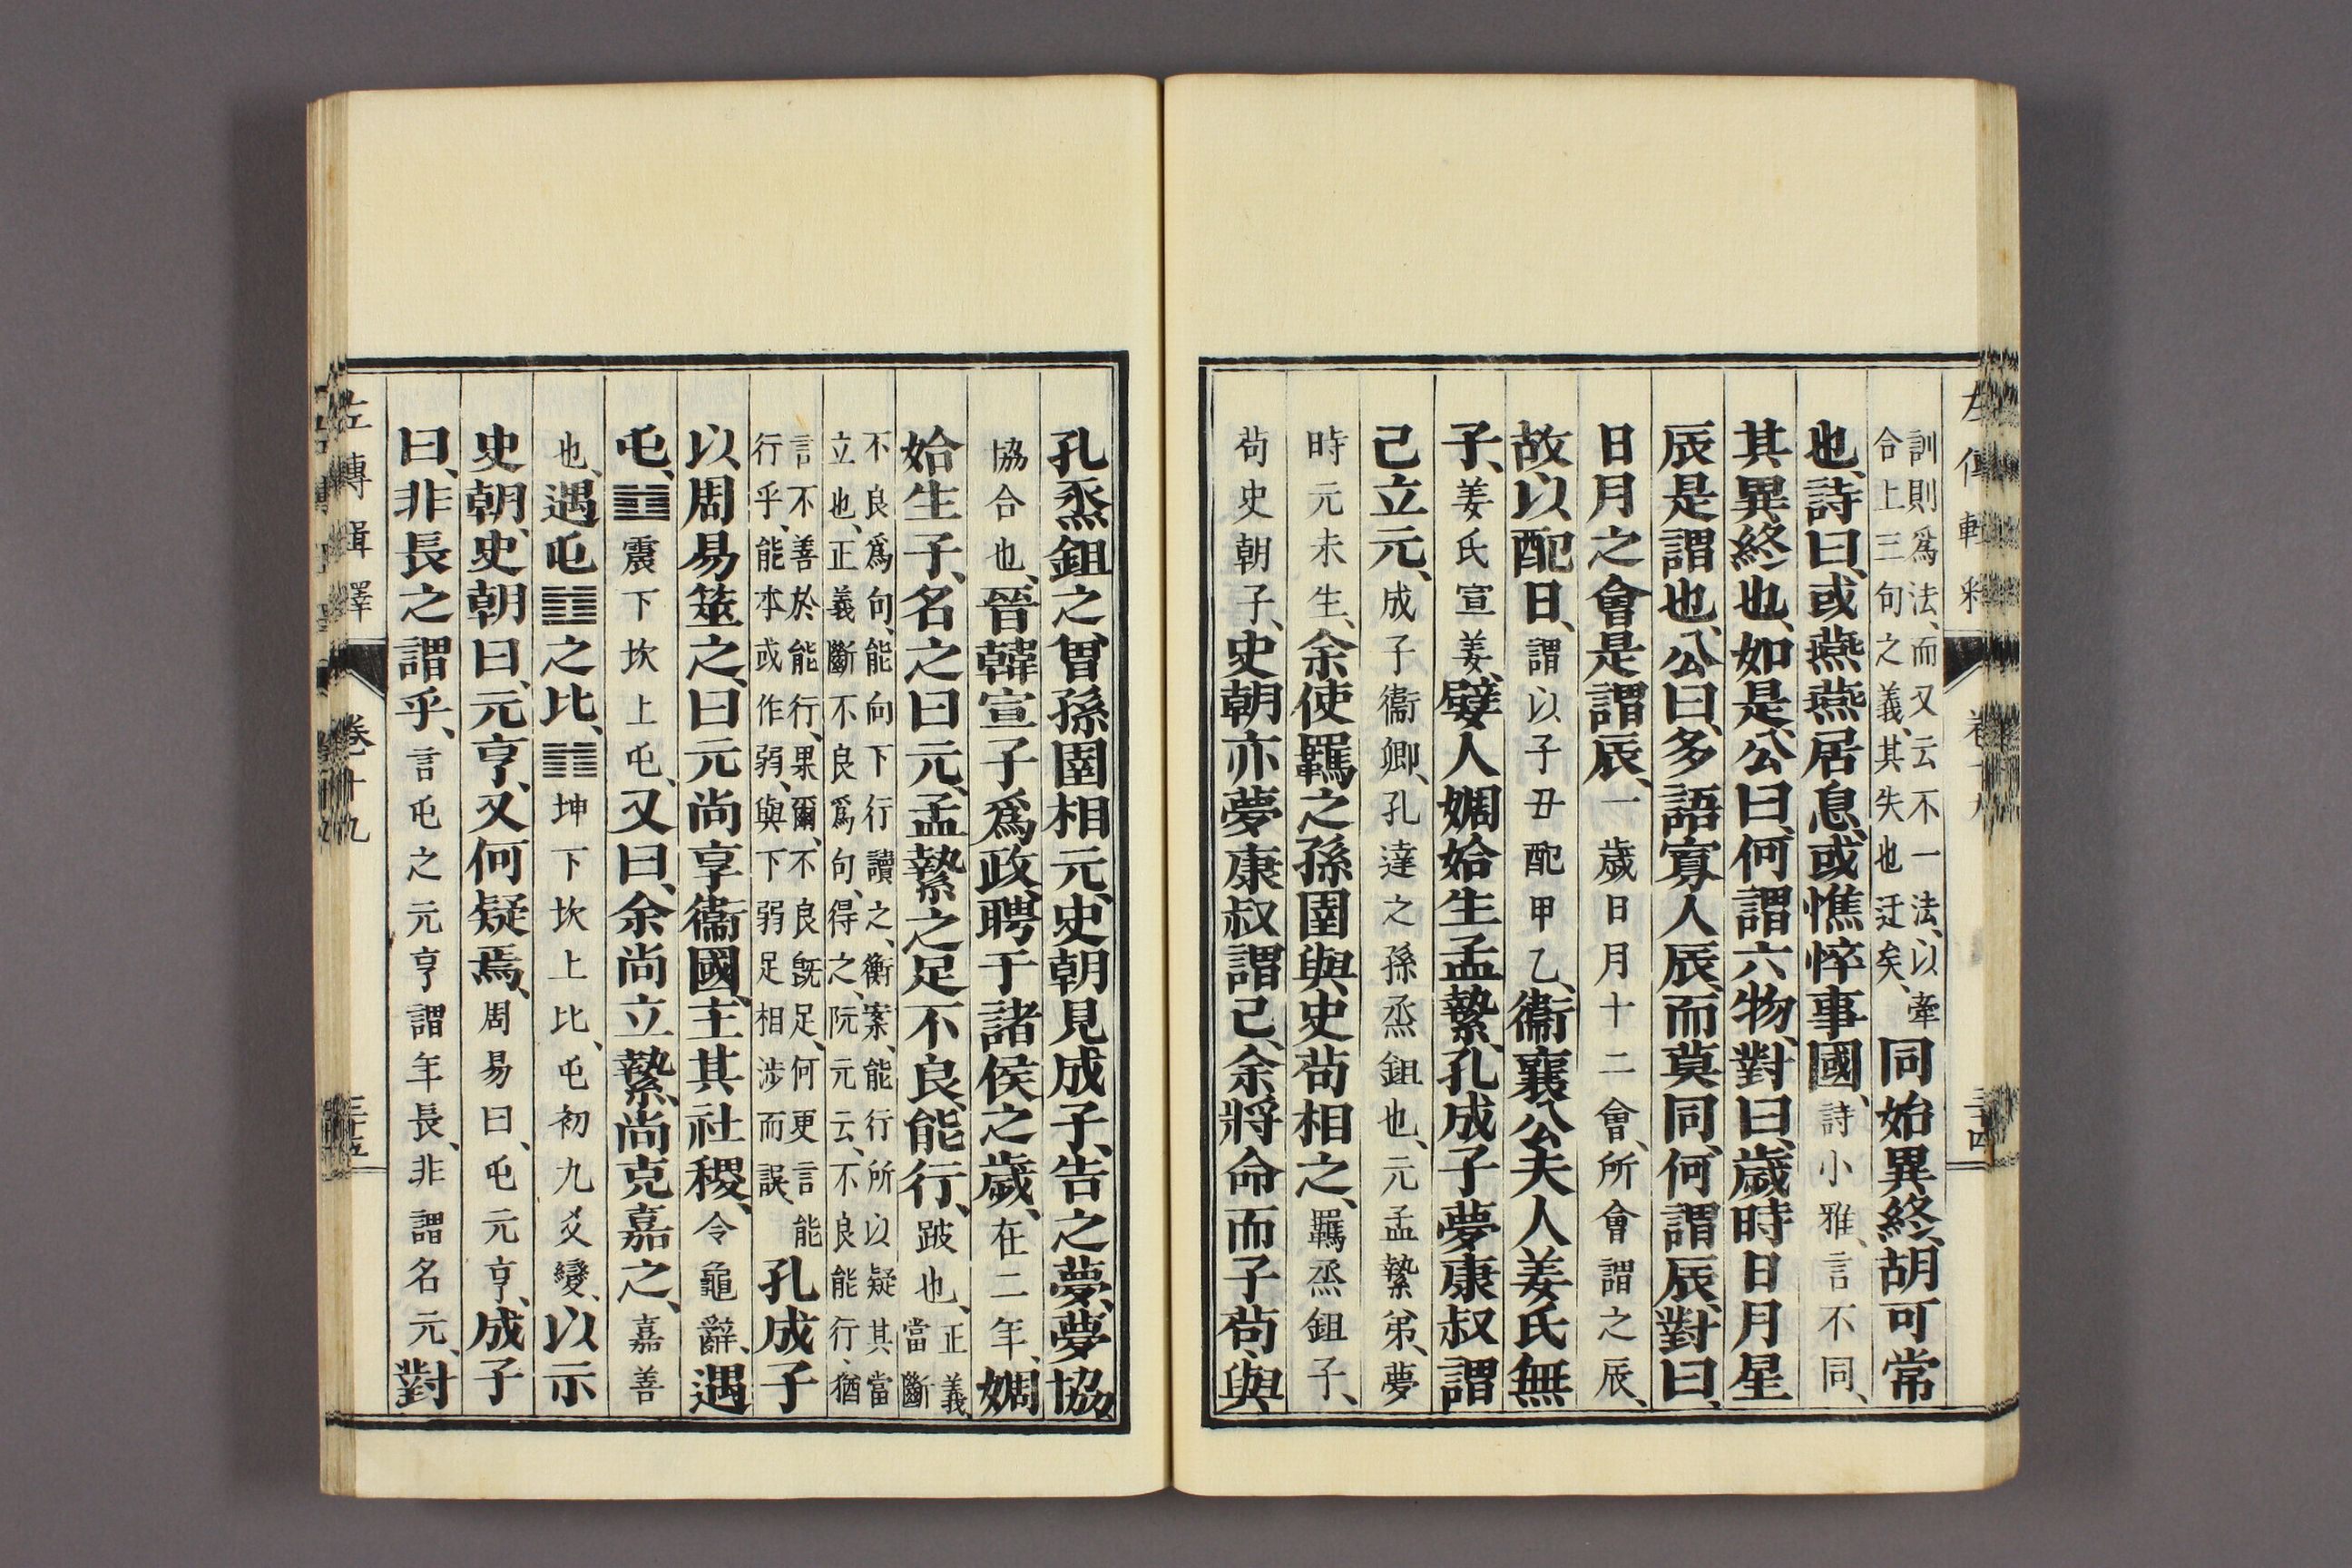 訓則爲法、而又云不一法、以牽
合上三句之義、其失也迂矣、
同始異終、胡可常
也、詩曰、或燕燕居息、或憔悴事國、詩小雅、言不同、
其異終也、如是、公曰、何謂六物、對曰、歲時日月星
辰是謂也、公曰、多語寡人辰、而莫同、何謂辰、對曰、
日月之會是謂辰、一歲日月十二會、所會謂之辰、
故以配日、謂以子丑配甲乙、衞襄公夫人姜氏無
子、姜氏宣姜、嬖人婤姶生孟縶、孔成子夢康叔謂
己立元、成子衞卿、孔達之孫烝鉏也、元孟縶弟、夢
時元未生、余使羈之孫圉與史苟相之、羈烝鉏子、
苟史朝子、史朝亦夢康叔謂己、余將命而子苟、與
孔烝鉏之曾孫圉相元、史朝見成子、告之夢、夢協、
協合也、晉韓宣子爲政、聘于諸侯之歲、在二年、婤
姶生子、名之曰元、孟縶之足不良、能行、跛也、正義、當斷
不良爲句、能向下行讀之、衡案、能行所以疑其當
立也、正義斷不良爲句、得之、阮元云、不良能行、猶
言不善於能行、果爾、不良既足、何更言能
行乎、能本或作弱、與下弱足相涉而誤、
孔成子
以周易筮之、曰、元尚享衞國、主其社稷、令龜辭、遇
屯、䷂震下坎上屯、又曰、余尚立縶、尚克嘉之、嘉善
也、遇屯䷂之比、䷇坤下坎上比、屯初九爻變、以示
史朝、史朝曰、元亨、又何疑焉、周易曰、屯元亨、成子
曰、非長之謂乎、言屯之元亨、謂年長、非謂名元、對
左傳輯釋 卷十九 三十五